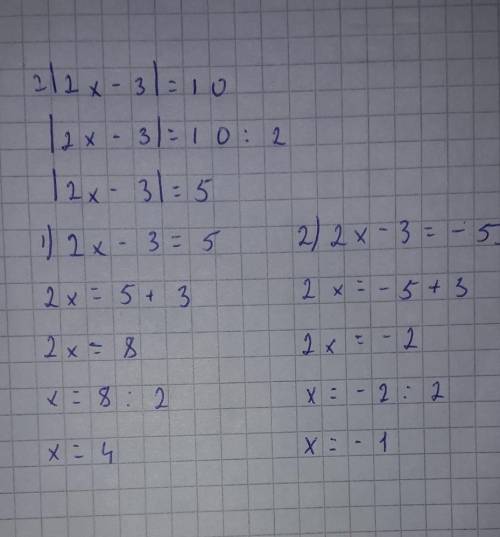 2|2x - 3| = 10
|2x - 3| = 10 : 2
|2x - 3| = 5
1) 2x - 3 = 5
2x = 5 + 3
2x = 8
x = 8 : 2
x = 4
2) 2x - 3 = - 5
2x = - 5 + 3
2x = - 2
x = - 2 : 2
x = - 1